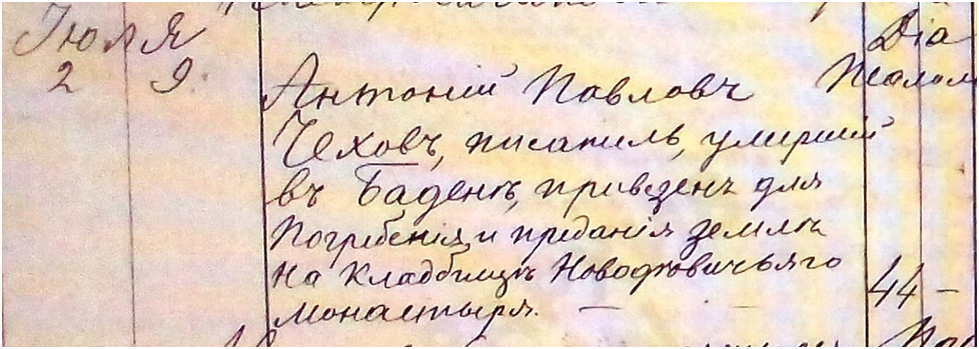 Июля
2 9. Діа
Антоній Павловъ Псалом
Чеховъ, писатель, умершій
въ Баденѣ, привезенъ для
погребенія и преданія землѣ
на кладбищѣ Новодѣвичьяго
монастыря. — — 44 —